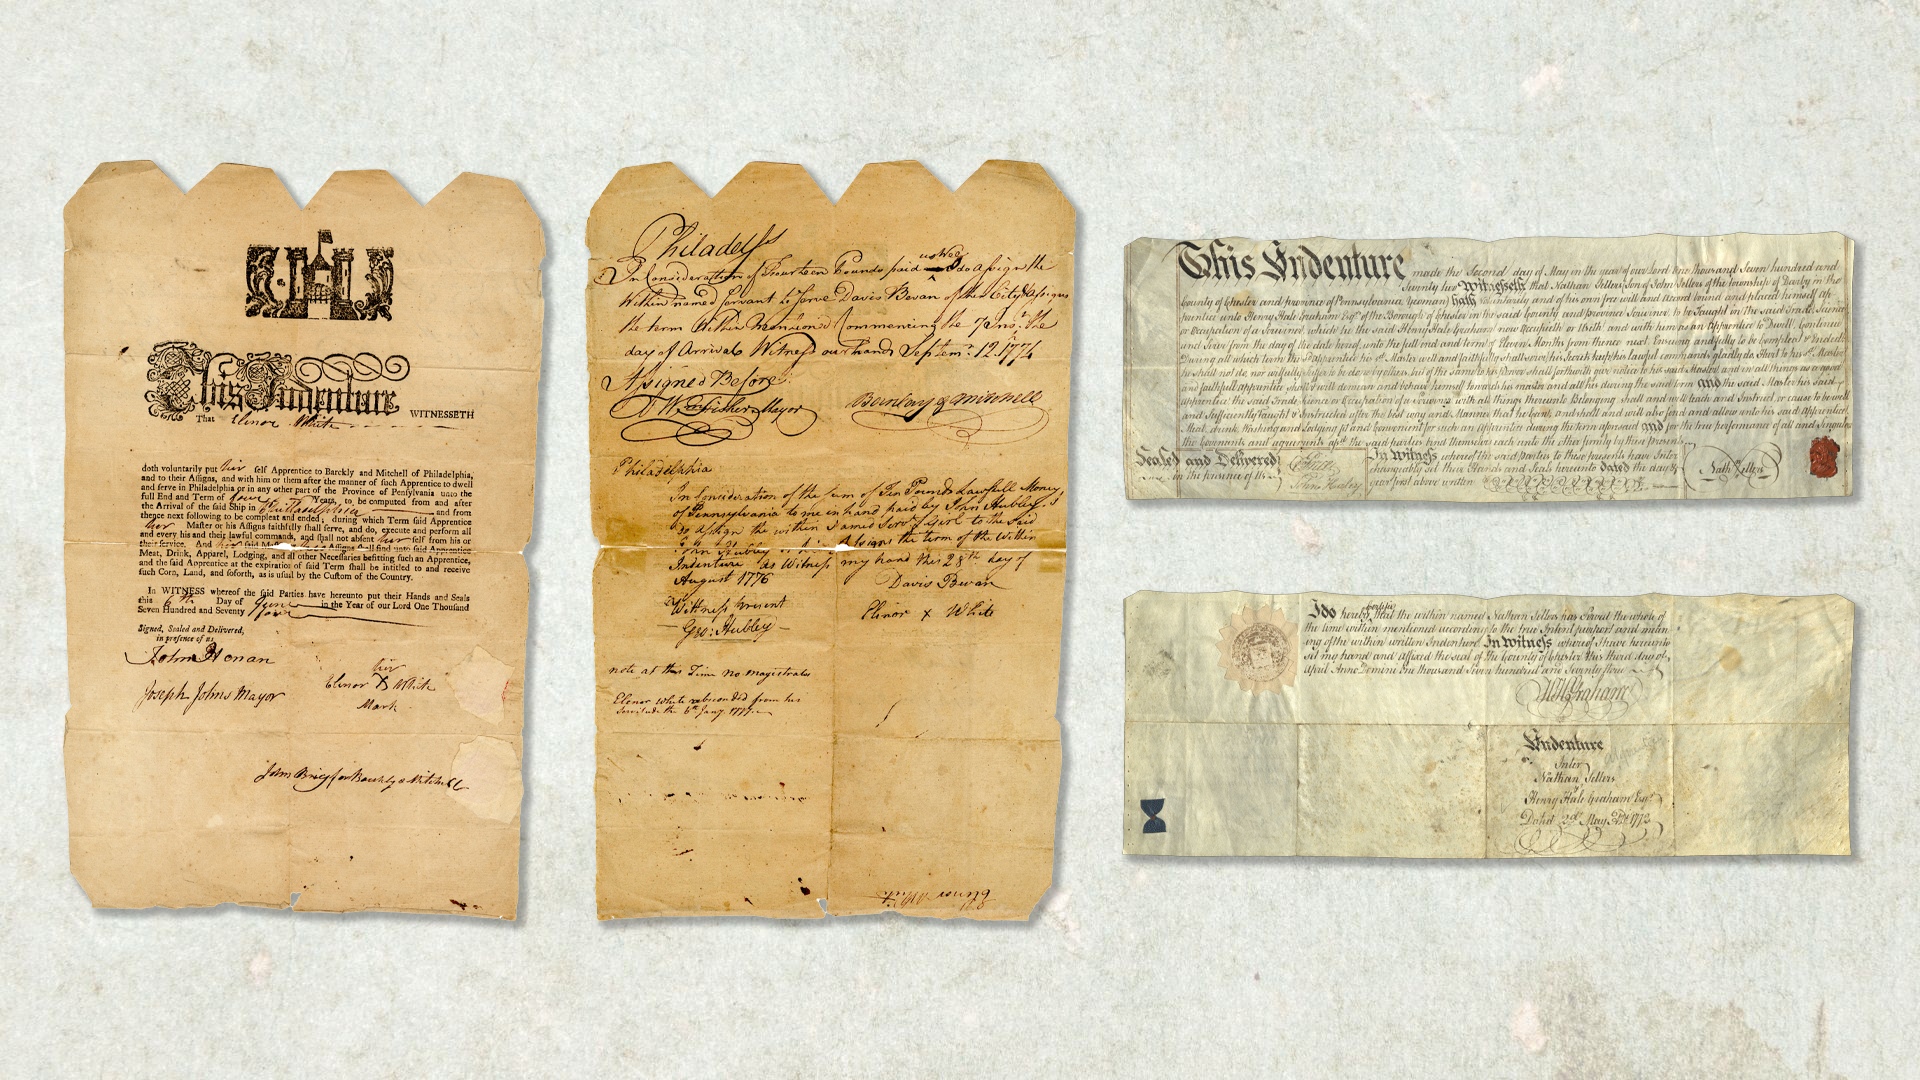 This Indenture WITNESSETH
That Elenor White
doth voluntarily put her self Apprentice to Barckly and Mitchell of Philadelphia,
and to their Assigns, and with him or them after the manner of such Apprentice to dwell
and serve in Philadelphia or in any other part of the Province of Pensylvania unto the
full End and Term of four Years, to be computed from and after
the Arrival of the said Ship in Philladelphia and from
thence next following to be compleat and ended; during which Term said Apprentice
her Master or his Assigns faithfully shall serve, and do, execute and perform all
and every his and their lawful commands, and shall not absent her self from his or
their service. And said Assigns shall find unto said Apprentice
Meat, Drink, Apparel, Lodging, and all other Necessaries befitting such an Apprentice,
and the said Apprentice at the expiration of said Term shall be intitled to and receive
such Corn, Land, and soforth, as is usual by the Custom of the Country.
In WITNESS whereof the said Parties have hereunto put their Hands and Seals
this 6th Day of June in the Year of our Lord One Thousand
Seven Hundred and Seventy four
Signed, Sealed and Delivered,
in presence of us,
John Honan
Joseph Johns Mayor
her
Elenor X White
Mark
John for Barckly & Mitchell
Philadelpa
In Consideration of Fourteen Pounds paid us We do assign the
Within named Servant to serve Davis Bevan of the City & assigns
the term Within Mentioned Commencing the 7 Inst. the
day of Arrival Witness our hands Septemr. 12. 1774
Assigned Before
Wm Fisher Mayor
Barclay & Mitchell
Philadelphia
In Consideration of the sum of Ten Pounds Lawfull Money
of Pennsylvania to me in hand paid by John Hubley I
do assign the within Named Servt. Girl to the Said
John Hubley Assigns the term of the Within
Indenture as Witness my hand this 28th day of
August 1776
Davis Bevan
Wittness present
Elinor X White
Geo: Hubley
note at this Time no magistrates
Elenor White absconded from her
servitude the 6th Jany 1777
Elenor White
This Indenture made the Second day of May in the year of our Lord One thousand Seven hundred and
Seventy two Witnesseth that Nathan Sellers Son of John Sellers of the Township of Darby in the
County of Chester and province of Pennsylvania Yeoman hath voluntarily and of his own free will and accord bound and placed himself ap
prentice unto Henry Hale Graham Esqr. of the Borough of Chester in the said County and province Scrivener to be taught in the said trade Science
or Occupation of a Scrivener which he the said Henry Hale Graham now Occupieth or Useth and with him as an Apprentice to Dwell Continue
and Serve from the day of the date hereof unto the full end and term of Eleven Months from thence next Ensuing and fully to be Compleat & Ended
During all which term the sd. Apprentice his sd. Master well and faithfully shall serve his Secrets keep his lawful commands gladly do Hurt to his sd. Master
he shall not do nor wilfully suffer to be done by others but of the same to his Power shall forthwith give notice to his said Master and in all things as a good
and faithful apprentice shall & will demean and behave himself towards his master and all his during the said term and the said Master his said
apprentice the said Trade Science or Occupation of a Scrivener with all things thereunto Belonging shall and will teach and Instruct or cause to be well
and Sufficiently Taught & Instructed after the best way and Manner that he can and shall and will also find and allow unto his said Apprentice
Meat drink Washing and Lodging fit and Convenient for such an apprentice during the term aforesaid and for the true performance of all and Singular
the Covenants and agreements afsd. the said parties bind themselves each unto the other firmly by these presents
Sealed and Delivered
in the presence of
In Witness whereof the said Parties to these presents have Inter
changeably set their Hands and Seals hereunto dated the day &
year first above written
Nathn. Sellers
I do hereby certifie that the within named Nathan Sellers has served the whole of
the time within mentioned according to the true Intent purport and mean
ing of the within written Indenture In Witness whereof I have hereunto
set my hand and affixed the seal of the County of Chester this third day of
April Anno Domini One thousand Seven hundred and Seventy three
H H Graham
Indenture
Inter
Nathan Sellers
&
Henry Hale Graham Esqr.
Dated 2d. May 1772